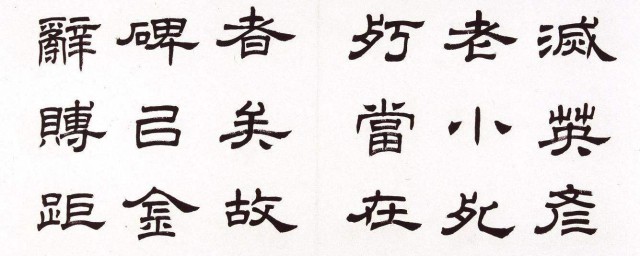 滅英彥
老小死
㱙當在
者矣故
碑已金
辭賻距